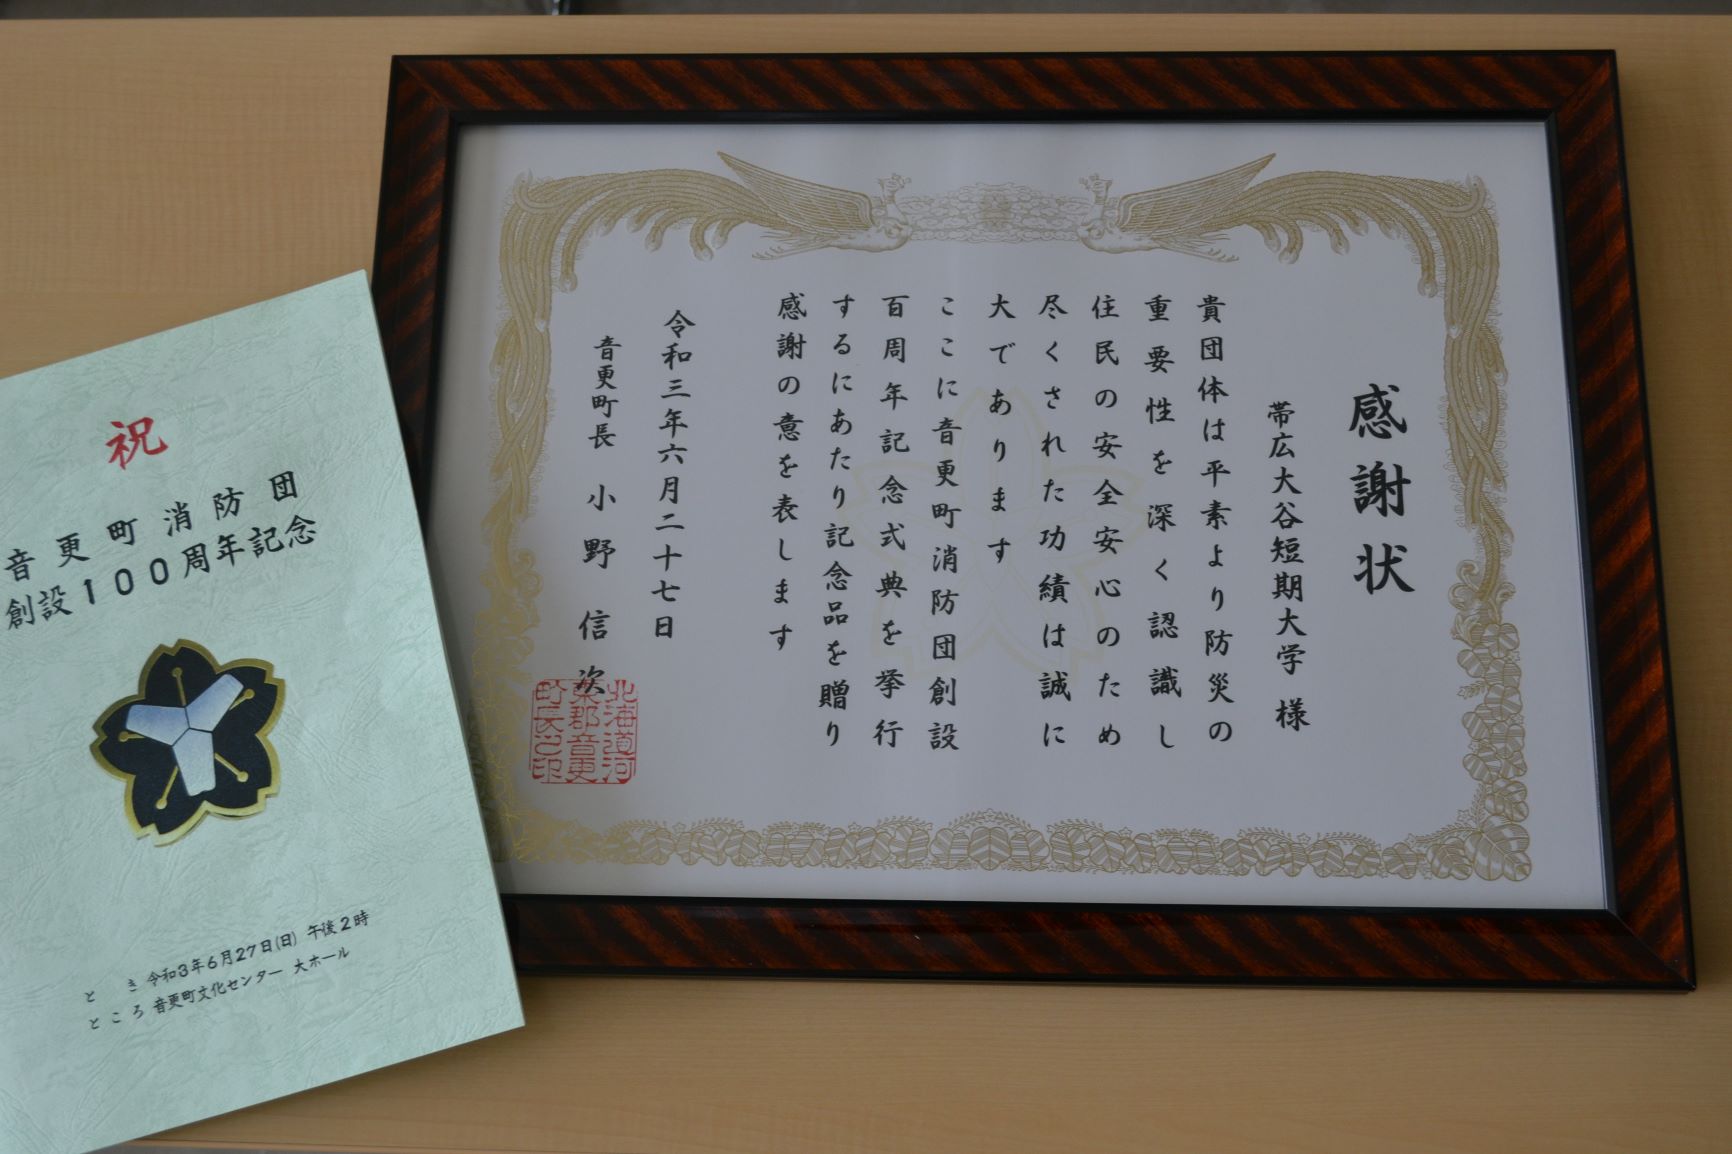 感謝状
帯広大谷短期大学 様
貴団体は平素より防災の
重要性を深く認識し
住民の安全安心のため
尽くされた功績は誠に
大であります
ここに音更町消防団創設
百周年記念式典を挙行
するにあたり記念品を贈り
感謝の意を表します
令和三年六月二十七日
音更町長 小野信次
北海道河
東郡音更
町長之印
祝
音更町消防団
創設100周年記念
とき 令和3年6月27日(日) 午後2時
ところ 音更町文化センター 大ホール